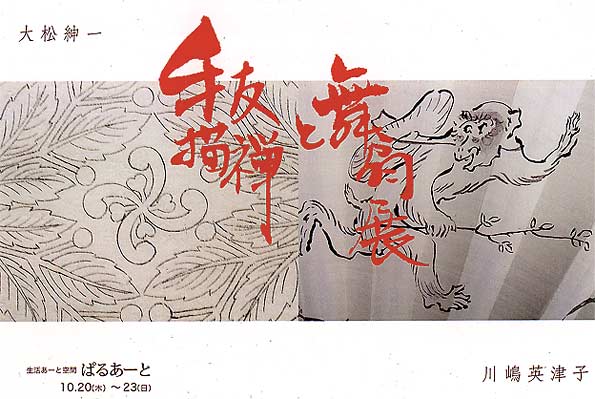 大松紳一
手描友禅と舞扇展
生活あーと空間 ぱるあーと
10.20(木) ～23(日)
川嶋英津子